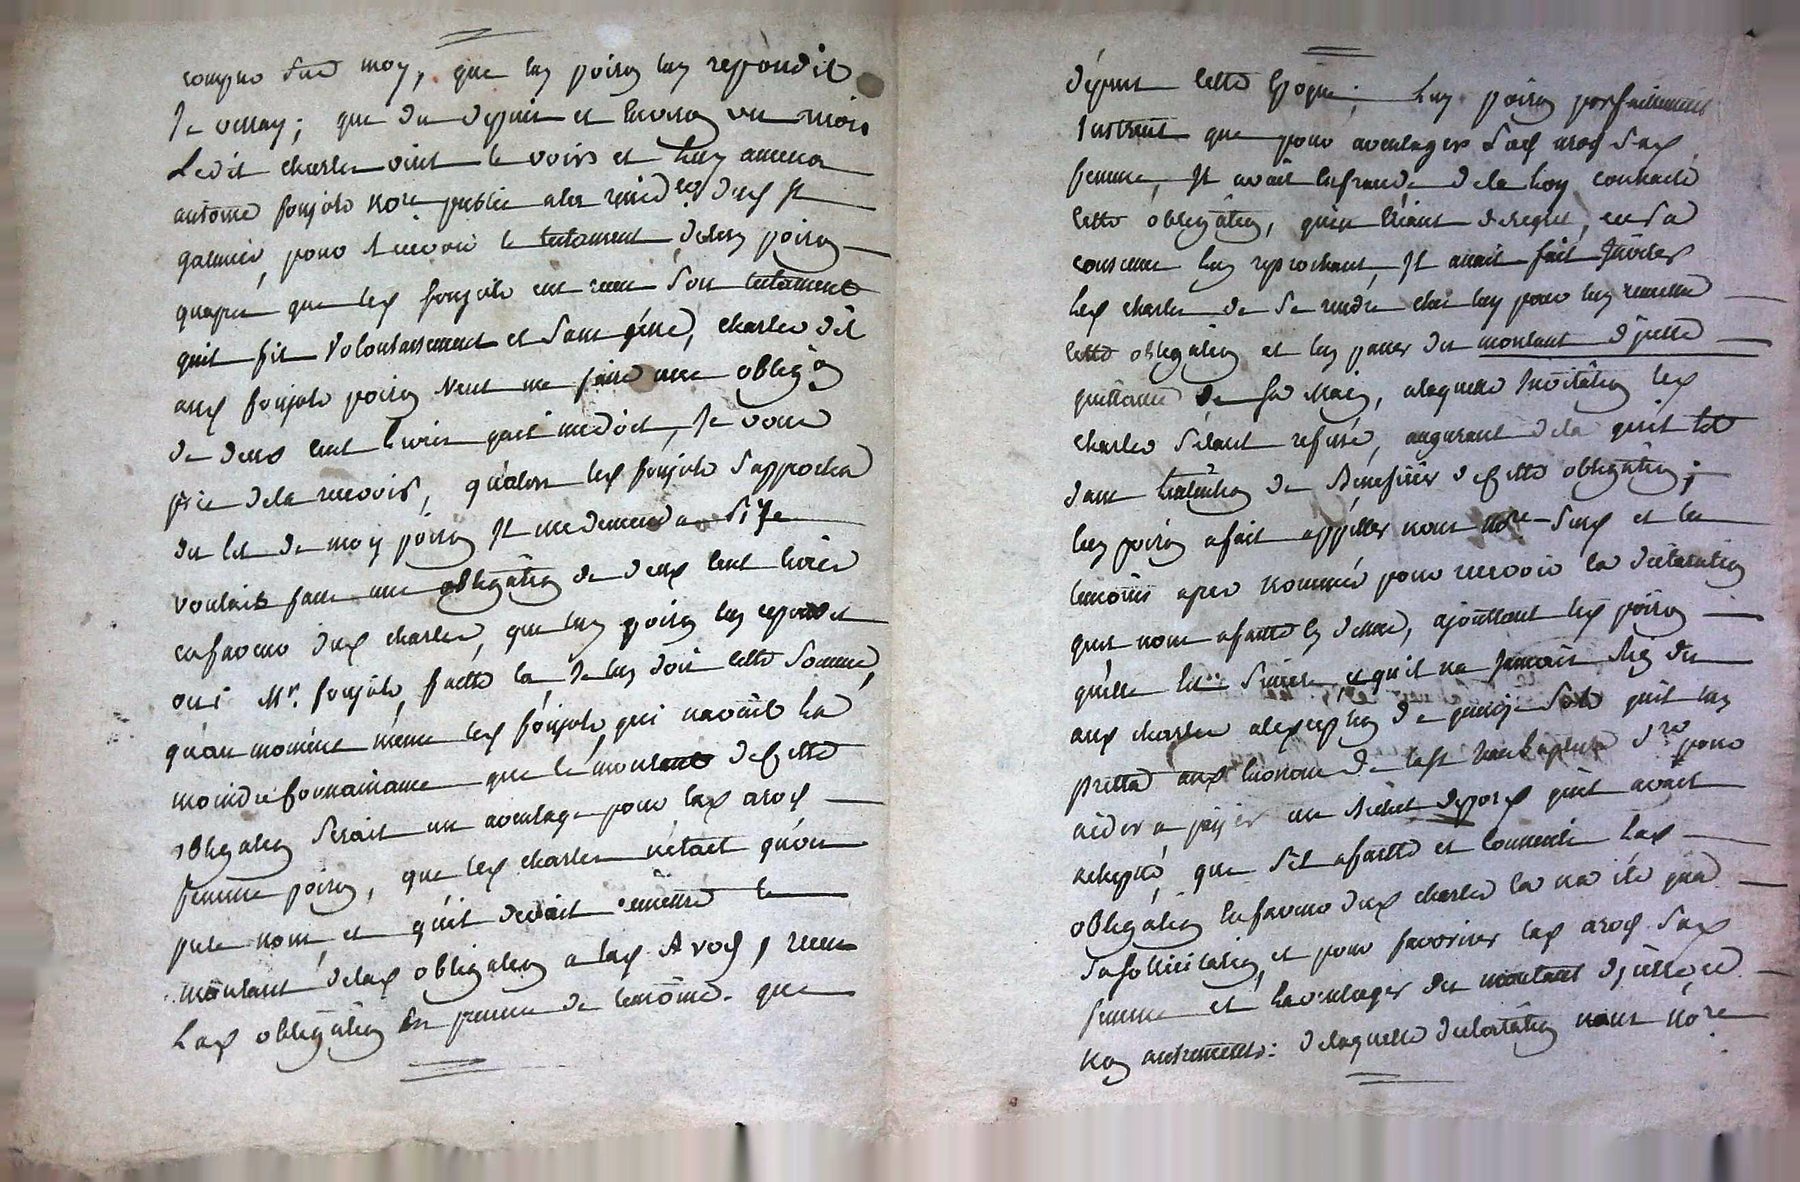 compte sur moy, que luy poiron luy repondit
Je verray; que du depuis et environ un mois
Ledit charles vint le voirs et luy amena
antoine foujols nore public a la resid.ce dud. St
galmier, pour recevoir le testament deluy poiron
qu'apres que led. foujols eut recu son testament
quil fit volontairement et sans gêne, charles dit
aud. foujols poiron veut me faire une obligaõn
de deux cent livres quil me doit, Je vous
prie dela recevoir, qu'alors led. foujols s'approcha
du lit de moy poiron Il me demanda si Je
voulais faire une obligâtion de deux cent livres
en faveur dud. charles, que luy poiron luy repondit
oui Mr. foujols, faitte la, Je luy dois cette somme,
qu'au moment même led. foujols, qui navait La
moindre connaissance que le montant de cette
obligation serait un aventage pour lad. arod
femme poiron, que led. charles n'était qu'un
prete nom, et qu'il devait remettre le
montant delad. obligation a lad. Arod, recu
Lad. obligâtion en presence de temoins. que
depuis cette Epoque; Luy poiron parfaittement
Instruit que pour aventager lad. arod sad.
femme, Il avait en fraude de la Loy contracté
cette obligâtion, qu'en etant de regret, en sa
conscience luy reprochant, Il avait fait Inviter
Led. charles de se rendre chez luy pour luy remettre
cette obligâtion et luy passer du montant d'jcelle
quittance de sa Main, a laquelle Invitâtion led.
charles s'étant refusé, augurant dela quil est
dans l'intention de Bénéficier de cette obligâtion;
luy poiron a fait appeller nous nore Susd. et les
temoins apres nommés pour recevoir la déclaration
quil nous a faitte ce jour, ajouttant led. poiron
qu'elle est sincere et qu'il na Jamais Rien du
aud. charles a l'exception de quinze sols quil luy
pretta aux environs de la St Jean baptiste dre pour
aider a payer un Billet deporc quil avait
achepté, que s'il a faitte et consenti Lad.
obligâtion en faveur dud. charles ce na été qu'a
sa sollicitation, et pour favoriser lad. arod sad.
femme et L'aventager du montant d'jcelle et
non autrement: de laquelle declarâtion nous Nore